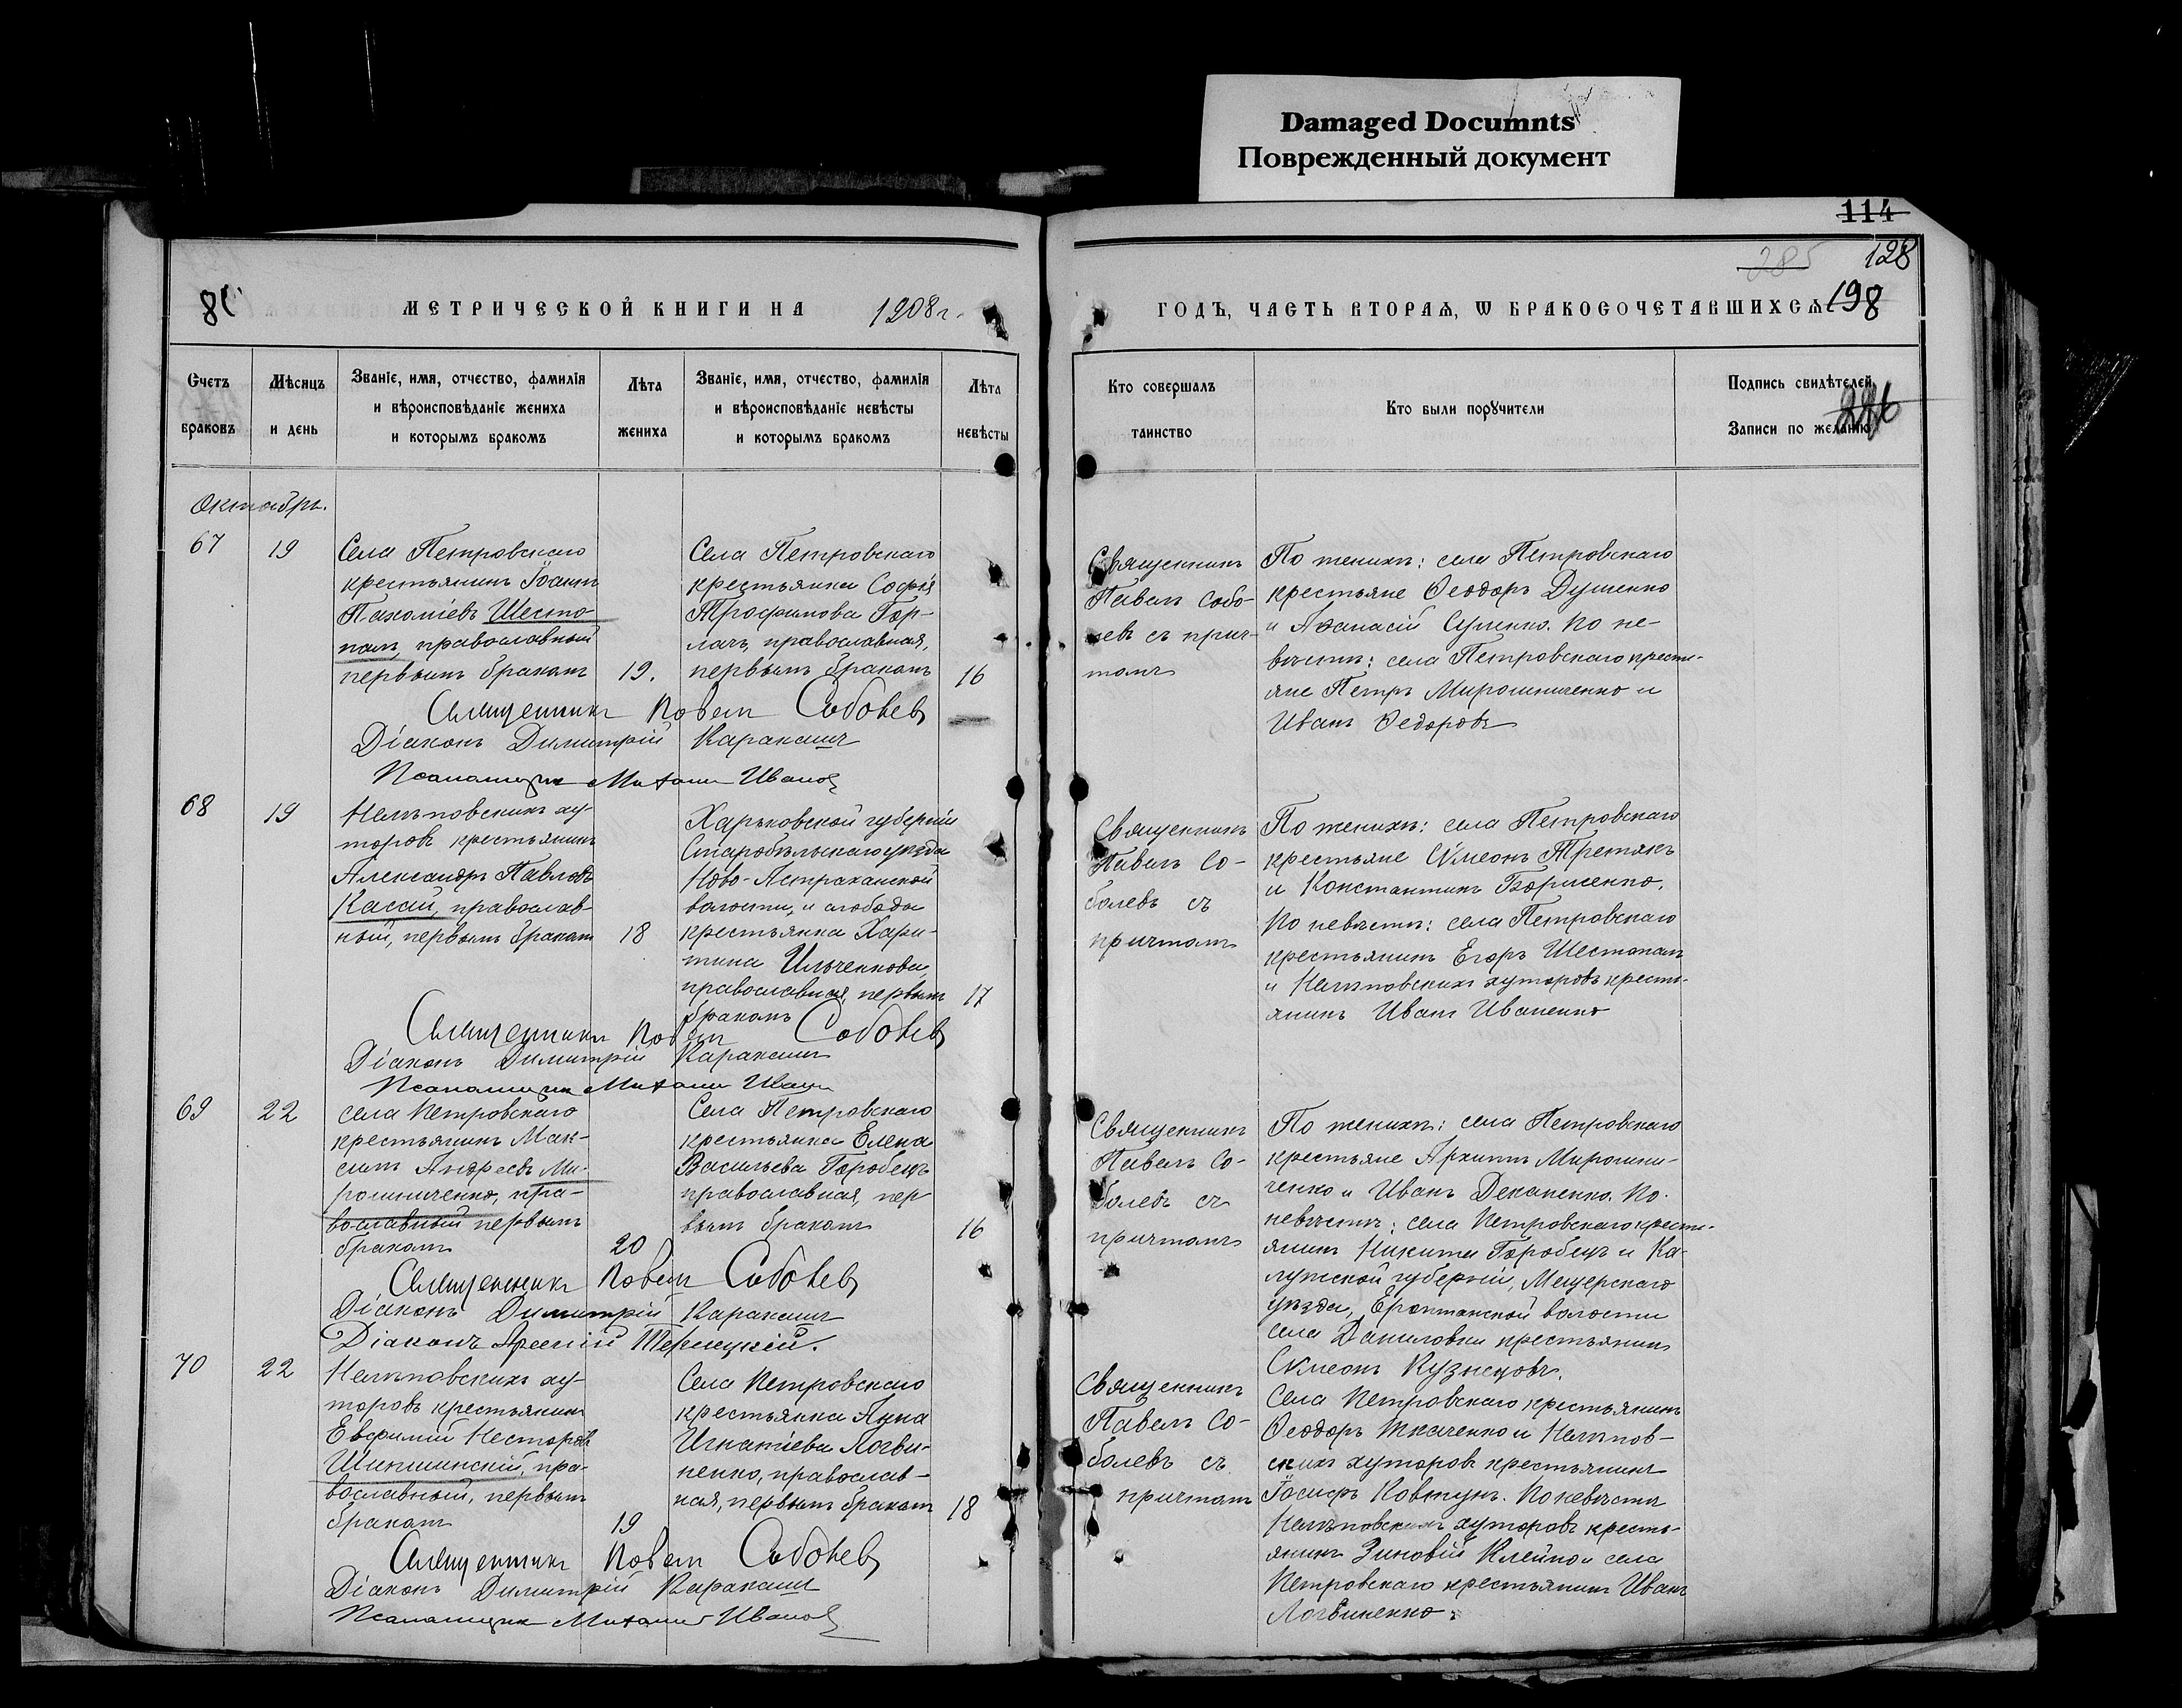 Damaged Documnts
Поврежденный документ
114
285
128
198
МЕТРИЧЕСКОЙ КНИГИ НА 1908 г.
ГОДЪ, ЧАСТЬ ВТОРАЯ, Ѡ БРАКОСОЧЕТАВШИХСЯ
Счетъ
браковъ
Мѣсяцъ
и день
Званіе, имя, отчество, фамилія
и вѣроисповѣданіе жениха
и которымъ бракомъ
Лѣта
жениха
Званіе, имя, отчество, фамилія
и вѣроисповѣданіе невѣсты
и которымъ бракомъ
Лѣта
невѣсты
Кто совершалъ
таинство
Кто были поручители
Подпись свидѣтелей
Записи по желанію
Октябрь.
67
19
Села Петровскаго
крестьянинъ Іоаннъ
Пахоміевъ Шесто-
палъ, православный
первымъ бракомъ
19.
Села Петровскаго
крестьянка Софія
Трофимова Гор-
лачъ, православная,
первымъ бракомъ
16
Священникъ
Павелъ Собо-
левъ съ прич-
томъ
По женихѣ: села Петровскаго
крестьяне Ѳеодоръ Душенко
и Аѳанасій Сушко. По не-
вѣстѣ: села Петровскаго кресть-
яне Петръ Мирошниченко и
Иванъ Ѳедоровъ
Священникъ Павелъ Соболевъ
Діаконъ Димитрій Каракашъ
Псаломщикъ Иванов
68
19
хут-
торовъ крестьянинъ
Александръ Павловъ
Касай, православ-
ный, первымъ бракомъ
18
Харьковской губерніи
Старобѣльскаго уѣзда
Ново-Астраханской
волости, и слободы
крестьянка Хари-
тина Ильченкова,
православная, первымъ
бракомъ
17
Священникъ
Павелъ Со-
болевъ съ
причтомъ
По женихѣ: села Петровскаго
крестьяне Сѵмеонъ Третякъ
и Константинъ Борисенко.
По невѣстѣ: села Петровскаго
крестьянинъ Егоръ Шестопалъ
и хуторовъ кресть-
янинъ Иванъ Иваненко
Священникъ Павелъ Соболевъ
Діаконъ Димитрій Каракашъ
Псаломщикъ Иванов
69
22
села Петровскаго
крестьянинъ Мак-
симъ Андреевъ Ми-
рошниченко, пра-
вославный первымъ
бракомъ
20
Села Петровскаго
крестьянка Елена
Васильева Горобецъ
православная, пер-
вымъ бракомъ
16
Священникъ
Павелъ Со-
болевъ съ
причтомъ
По женихѣ: села Петровскаго
крестьяне Архиппъ Мирошни-
ченко и Иванъ Деканенко. По
невѣстѣ: села Петровскаго кресть-
янинъ Никита Горобецъ и Ка-
лужской губерніи, Мещерскаго
уѣзда, волости
села Даниловки крестьянинъ
Сѵмеонъ Кузнецовъ.
Священникъ Павелъ Соболевъ
Діаконъ Димитрій Каракашъ
Діаконъ Арсеній
70
22
ху-
торовъ крестьянинъ
Евфимій Несторовъ
Шикшинскій, пра-
вославный, первымъ
бракомъ
19
Села Петровскаго
крестьянка Анна
Игнатіева Логви-
ненко, православ-
ная, первымъ бракомъ
18
Священникъ
Павелъ Со-
болевъ съ
причтомъ
Села Петровскаго крестьянинъ
Ѳеодоръ Ткаченко и
хуторовъ крестьянинъ
Іосифъ Ковтунъ. По невѣстѣ
хуторовъ кресть-
янинъ Зиновій Клейно и села
Петровскаго крестьянинъ Иванъ
Логвиненко.
Священникъ Павелъ Соболевъ
Діаконъ Димитрій Каракашъ
Псаломщикъ Иванов